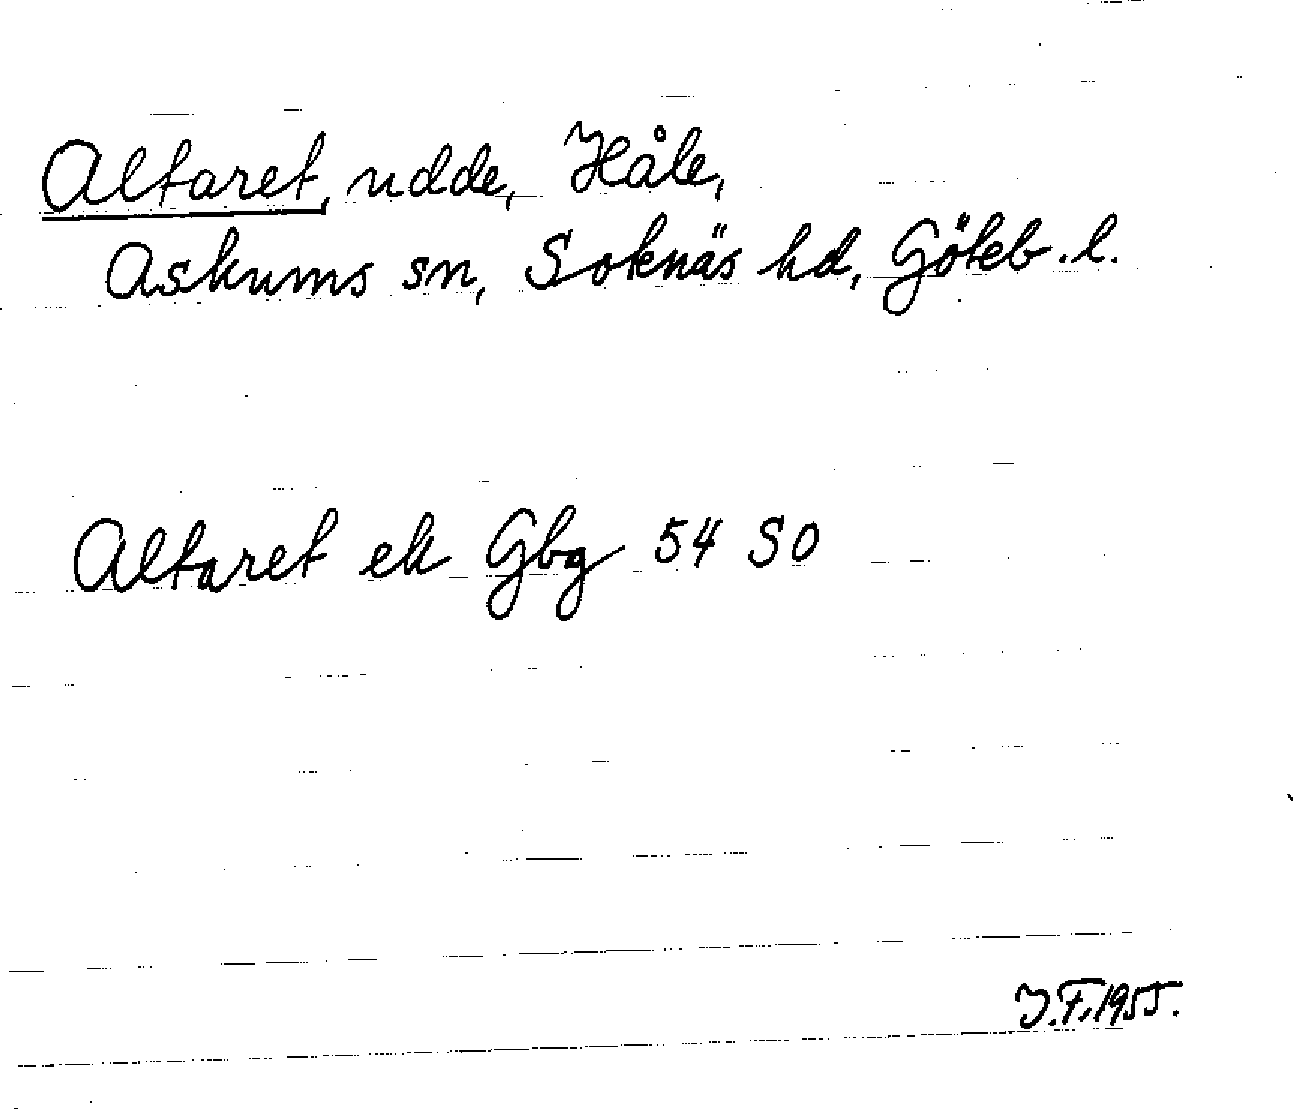 Altaret, udde, Håle,
Askums sn, Sotenäs hd, Göteb. l.
Altaret ek Gbg 54 SO
J.F. 1955.